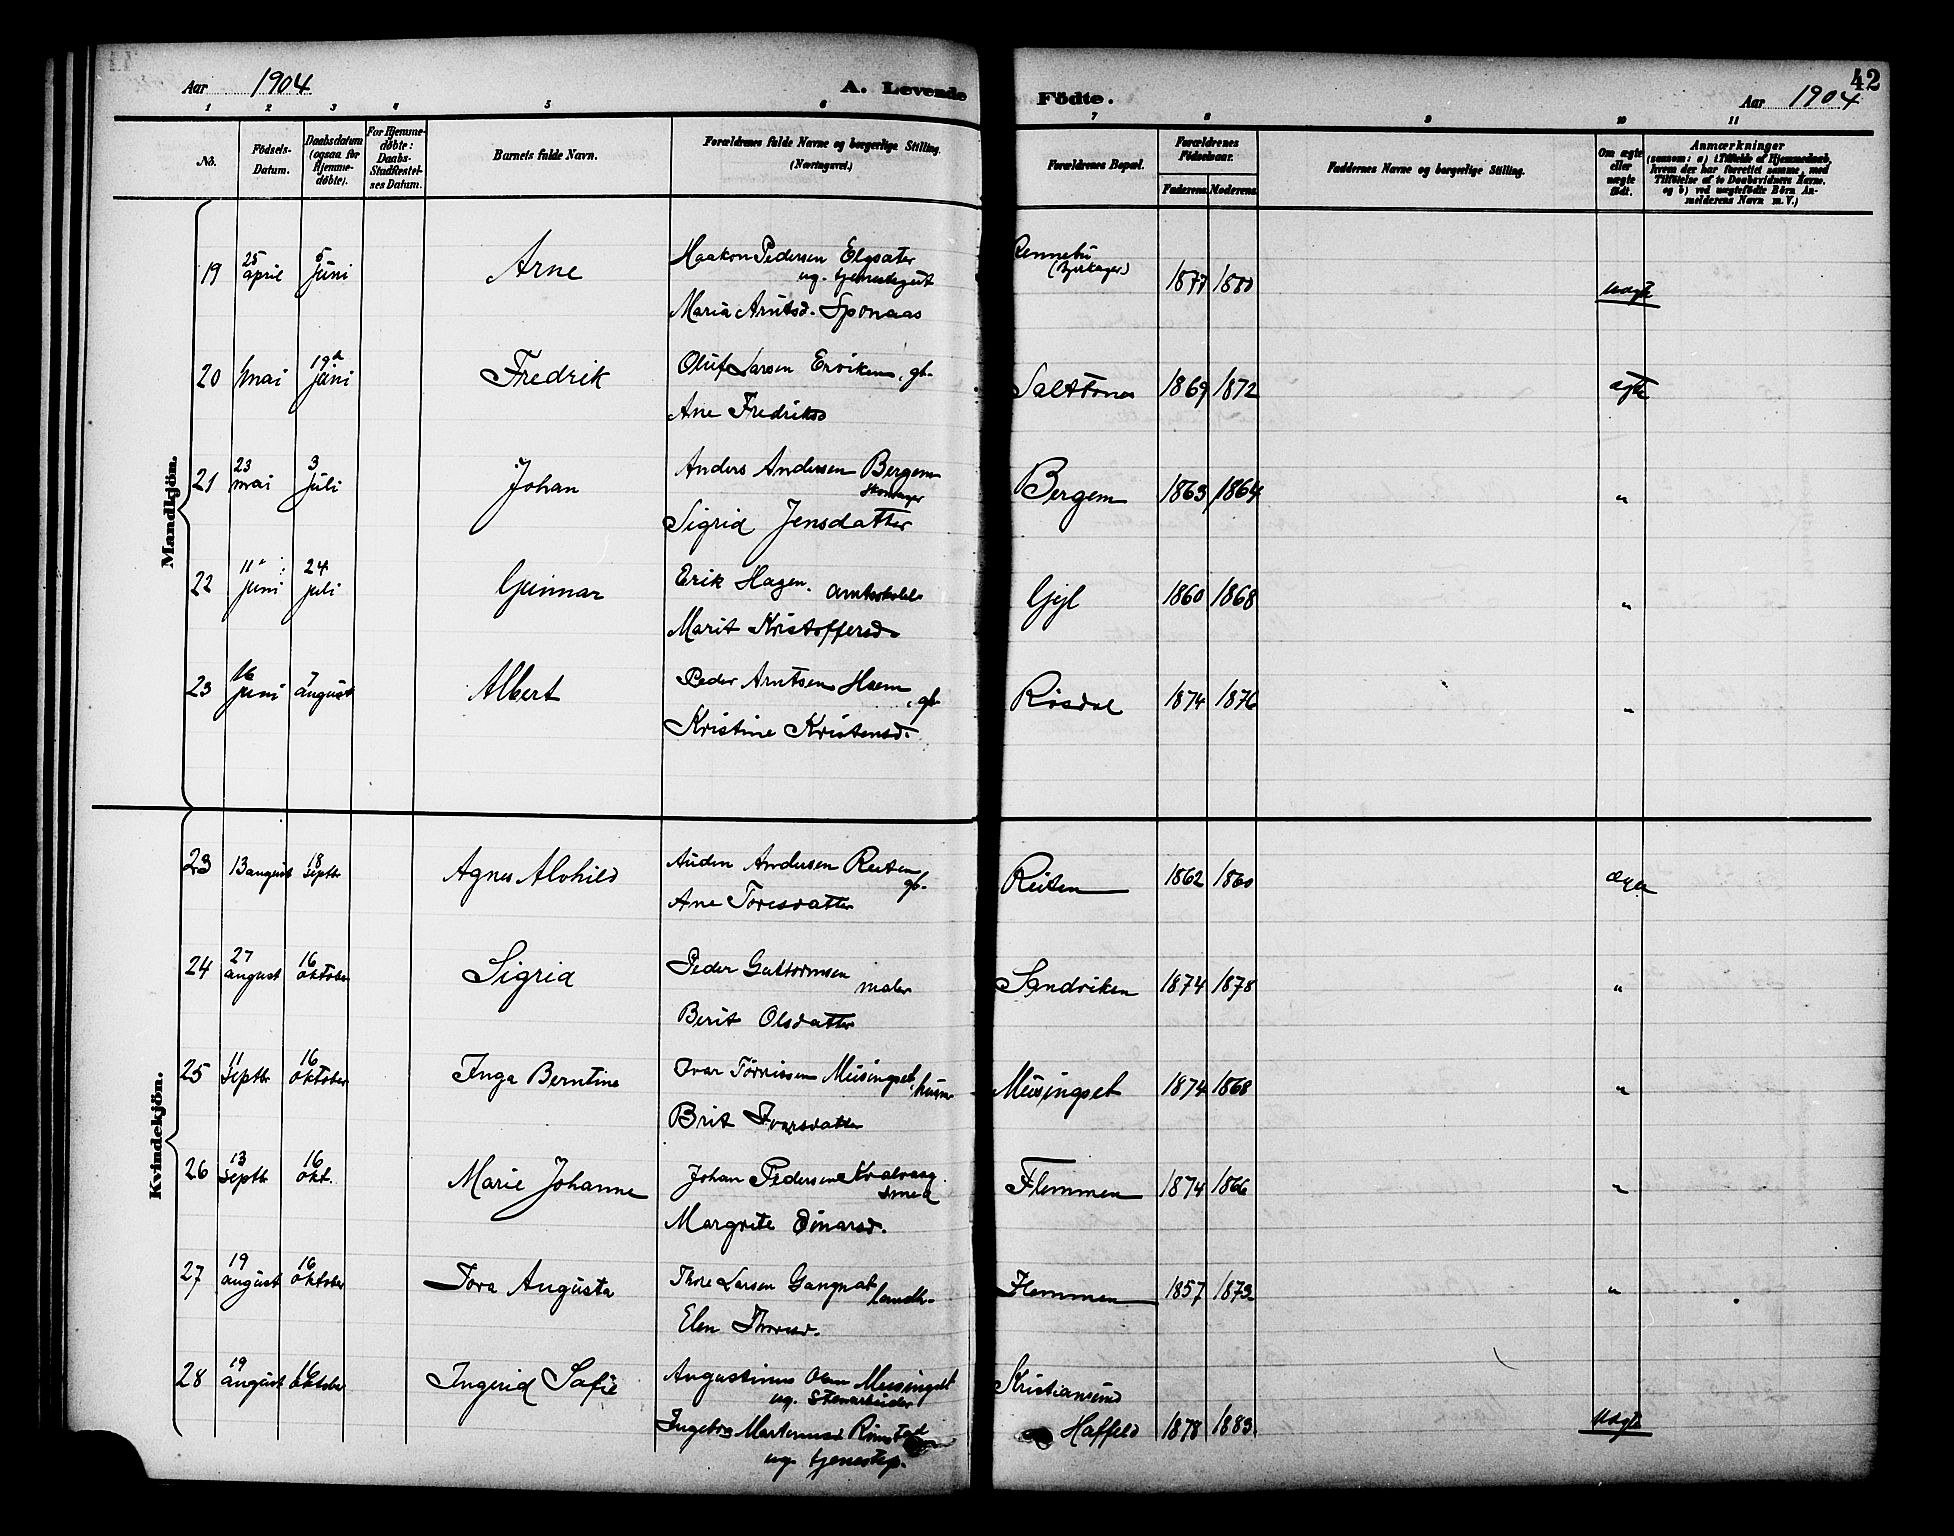 Aar 1904
A. Levende Födte.
Aar 1904
42
1 2 3 4 5 6 7 8 9 10 11
No.
Födsels-Datum.
Daabsdatum (ogsaa for Hjemme-døbte).
For Hjemme-døbte: Daabs-Stadfæstel-ses Datum.
Barnets fulde Navn.
Forældrenes fulde Navne og borgerlige Stilling. (Næringsvei.)
Forældrenes Bopæl.
Forældrenes Födselsaar.
Faderens. Moderens.
Faddernes Navne og borgerlige Stilling.
Om ægte eller uægte födt.
Anmærkninger
(saasom: a) i Tilfælde af Hjemmedaab, hvem der har forrettet samme, med Tilföielse af to Daabsvidners Navne, og b) ved uægtefödte Börn An-melderens Navn m. V.)
Mandkjön.
19 25 april 5 juni Arne Haakon Pedersen Elgsæter
ug. tjenestegut
Maria Arntsd. Sponaas
Rennebu
1880
uægte
20 mai 19de juni Fredrik Oluf Larsen Erviken, gb.
Ane Fredriksd
1869 1872 ægte
21 23 mai 3 juli Johan Anders Andersen Bergem
Skomager
Sigrid Jensdatter
Bergem 1863 1864 "
22 11 juni 24 juli Gunnar Erik Hagen.
Marit Kristoffersd.
Gjøl 1860 1868 "
23 16 juni 7 august Albert Peder Arntsen Hæm
, gb.
Kristine Kristensd.
Røsdal 1874 1876 "
Kvindekjön.
23 13 august 18 septbr Agnes Alvhild Auden Andersen Reiten
gb.
Ane Toresdatter
Reiten 1862 1860 ægte
24 27 august 16 oktober Sigrid Peder Guttormsen
maler
Berit Olsdatter
Sandviken 1874 1878 "
25 11 septbr 16 oktober Inga Berntine Ivar Tørrissen Meisingset, husm
Brit Ivarsdatter
Meisingset 1874 1868 "
26 13 septbr 16 okt. Marie Johanne Johan Pedersen Kvalvaag
smed
Margrete Einarsd.
Flemmen 1874 1866 "
27 19 august 16 oktober Tora Augusta Thore Larsen Gangnat
landh.
Elen Thoresd.
Flemmen 1857 1873 "
28 19 august 16 oktober Ingerid Sofie Augustinus Olsen Meisingset
ug. Stenarbeider
Kristiansund
Ingebrg Martensd Rimstad
ug. tjenestep.
Haffeld 1878 1883. uægte